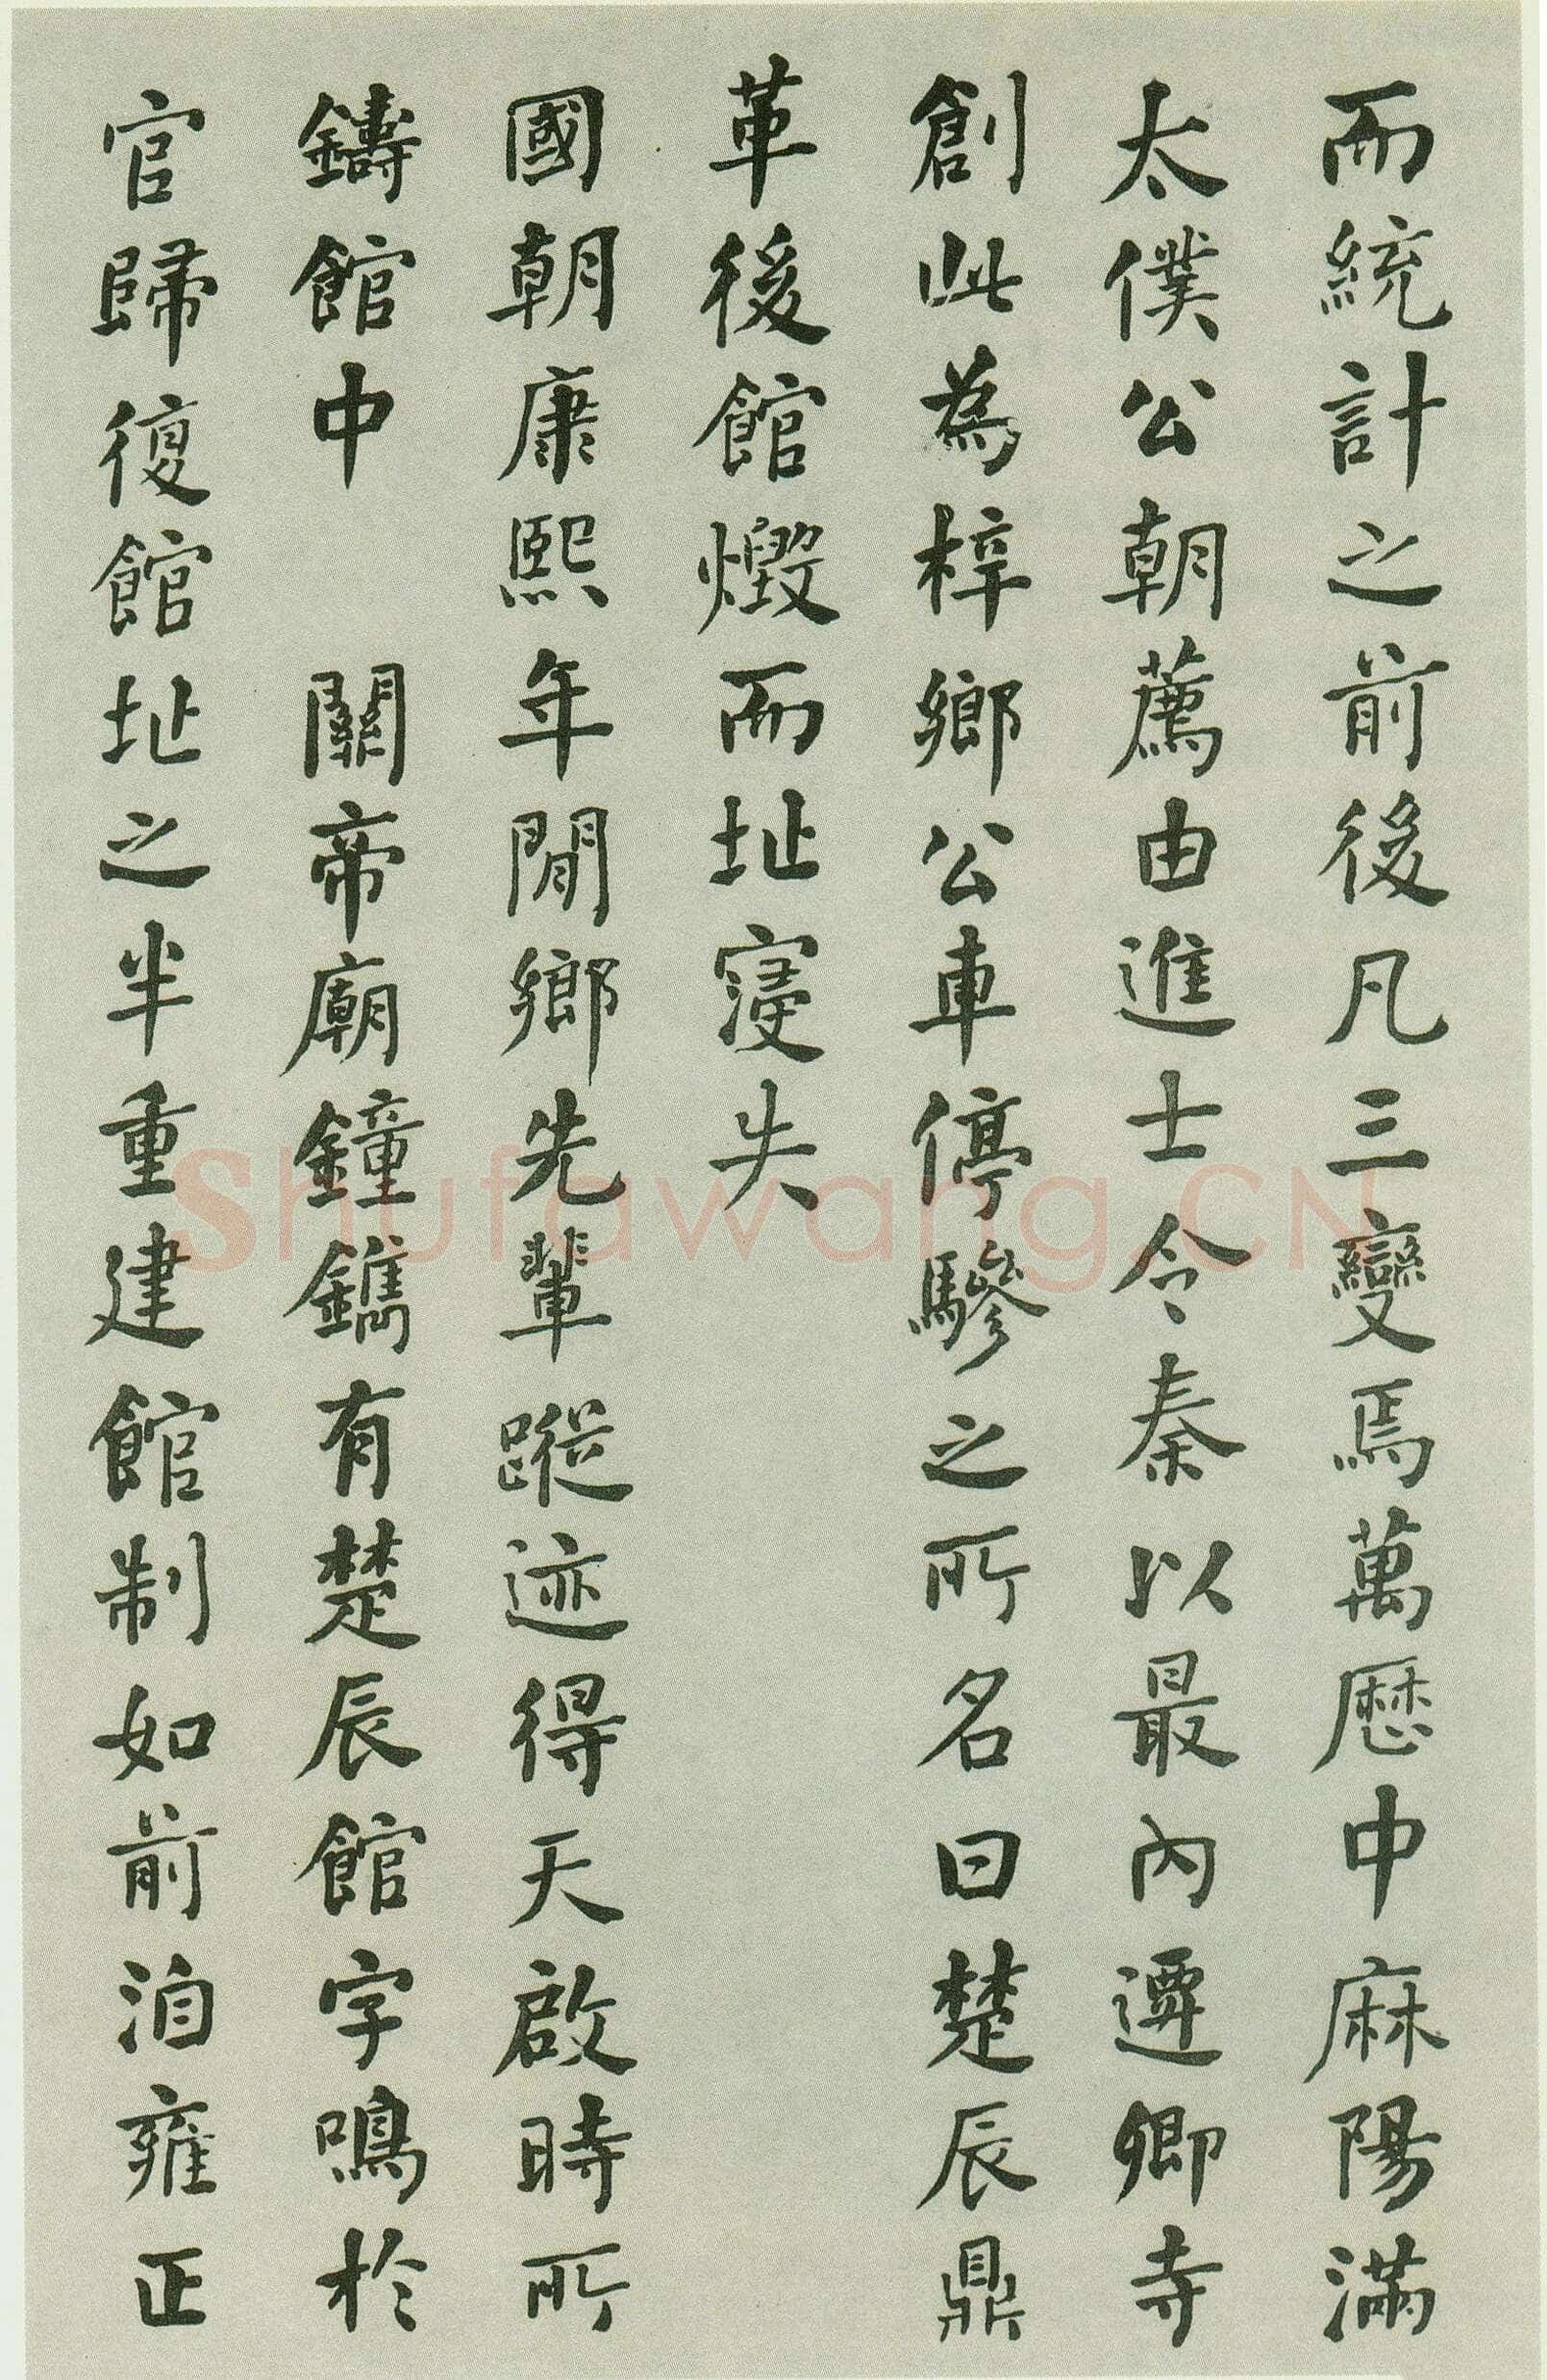 而統計之前後凡三變焉萬厯中麻陽滿
太僕公朝薦由進士令秦以最內遷卿寺
創此為梓鄉公車停驂之所名曰楚辰鼎
革後館燬而址寖失
國朝康熙年間鄉先輩蹤迹得天啟時所
鑄館中 關帝廟鐘鐫有楚辰館字鳴於
官歸復館址之半重建館制如前洎雍正
Shufawang.CN